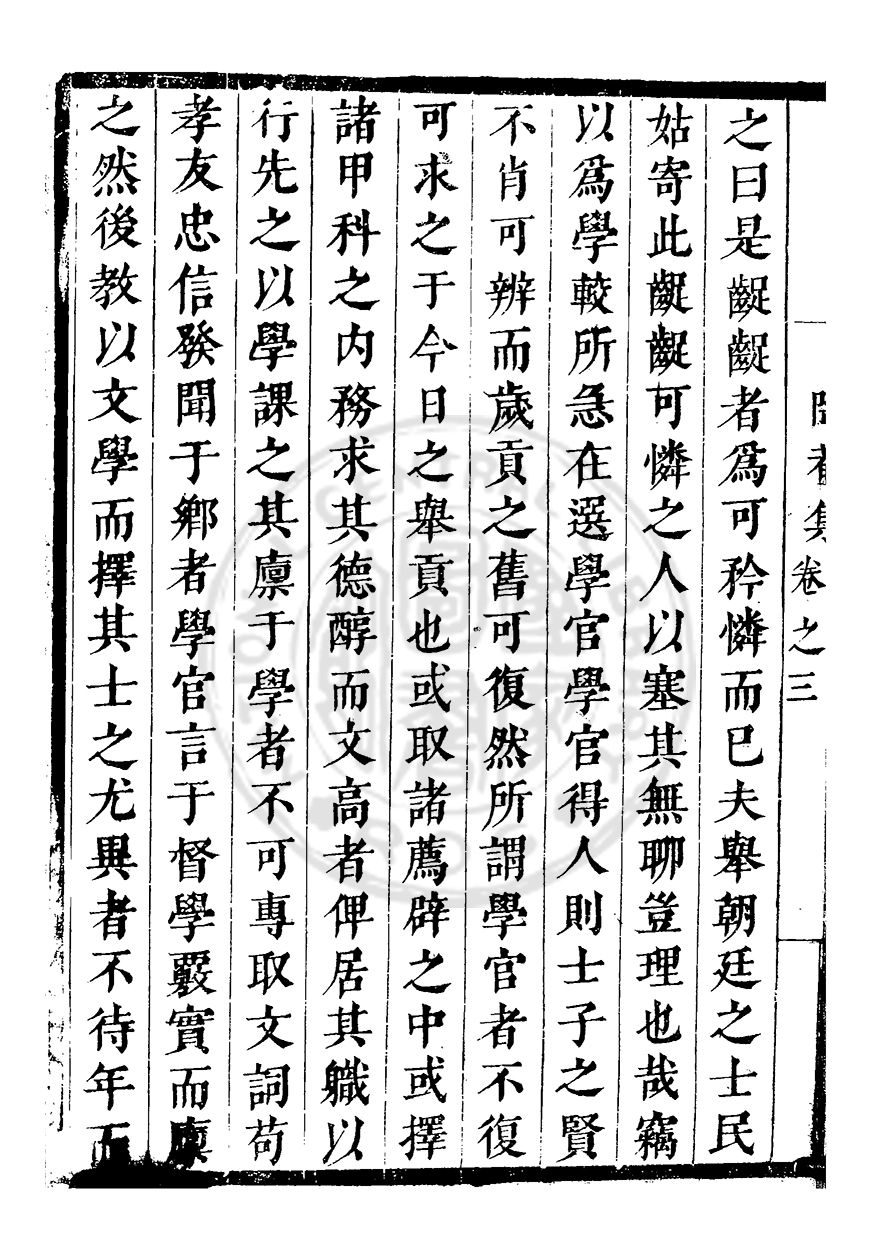 集卷之三
之曰是齪齪者爲可矜憐而已夫舉朝廷之士民
姑寄此齪齪可憐之人以塞其無聊豈理也哉竊
以爲學較所急在選學官學官得人則士子之賢
不肖可辨而歲貢之舊可復然所謂學官者不復
可求之于今日之舉貢也或取諸薦辟之中或擇
諸甲科之内務求其德醇而文高者俾居其職以
行先之以學課之其廪于學者不可專取文詞苟
孝友忠信發聞于鄉者學官言于督學覈實而廪
之然後教以文學而擇其士之尤異者不待年而